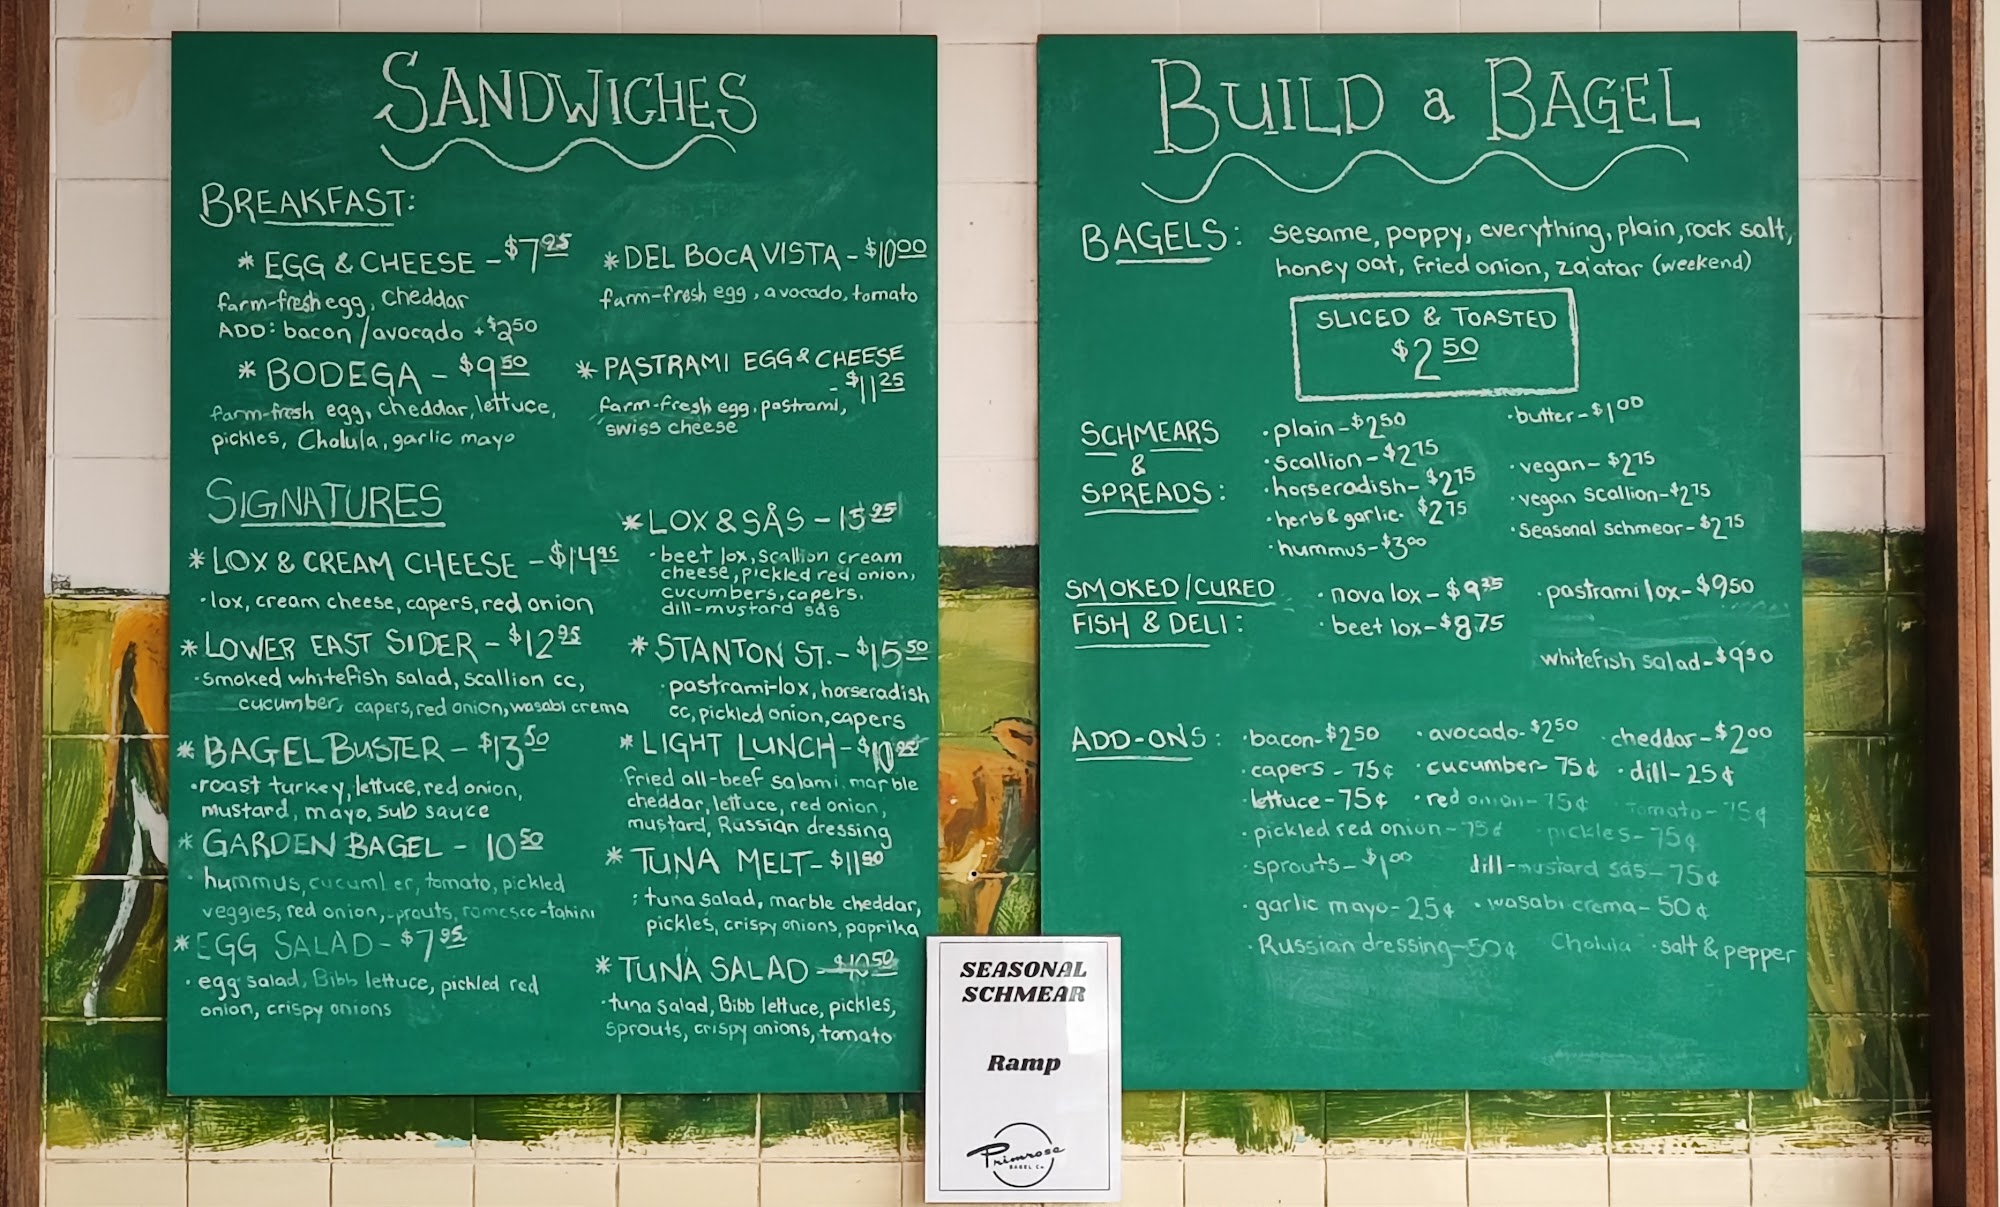 SANDWICHES
BREAKFAST:
* EGG & CHEESE - $7.95
farm-fresh egg, cheddar
ADD: bacon/avocado + $2.50
* BODEGA - $9.50
farm-fresh egg, cheddar, lettuce,
pickles, Cholula, garlic mayo
* DEL BOCA VISTA - $10.00
farm-fresh egg, avocado, tomato
* PASTRAMI EGG & CHEESE
- $11.25
farm-fresh egg, pastrami,
swiss cheese
SIGNATURES
* LOX & CREAM CHEESE - $14.95
· lox, cream cheese, capers, red onion
* LOWER EAST SIDER - $12.95
· smoked whitefish salad, scallion cc,
cucumber, capers, red onion, wasabi crema
* BAGEL BUSTER - $13.50
· roast turkey, lettuce, red onion,
mustard, mayo, sub sauce
* GARDEN BAGEL - 10.50
hummus, cucumber, tomato, pickled
veggies, red onion, sprouts, romesco-tahini
* EGG SALAD - $7.95
· egg salad, Bibb lettuce, pickled red
onion, crispy onions
* LOX & SÅS - 15.95
· beet lox, scallion cream
cheese, pickled red onion,
cucumbers, capers,
dill-mustard sås
* STANTON ST. - $15.50
pastrami-lox, horseradish
cc, pickled onion, capers
* LIGHT LUNCH - $10.95
fried all-beef salami, marble
cheddar, lettuce, red onion,
mustard, Russian dressing
* TUNA MELT - $11.50
· tuna salad, marble cheddar,
pickles, crispy onions, paprika
* TUNA SALAD - $10.50
· tuna salad, Bibb lettuce, pickles,
sprouts, crispy onions, tomato
BUILD a BAGEL
BAGELS: sesame, poppy, everything, plain, rock salt,
honey oat, fried onion, za'atar (weekend)
SLICED & TOASTED
$2.50
SCHMEARS
&
SPREADS:
· plain - $2.50
· scallion - $2.75
· horseradish - $2.75
· herb & garlic - $2.75
· hummus - $3.00
· butter - $1.00
· vegan - $2.75
· vegan scallion - $2.75
· seasonal schmear - $2.75
SMOKED/CURED
FISH & DELI:
· nova lox - $9.25
· beet lox - $8.75
· pastrami lox - $9.50
whitefish salad - $9.50
ADD-ONS: · bacon - $2.50 · avocado - $2.50 · cheddar - $2.00
· capers - 75¢ · cucumber - 75¢ · dill - 25¢
· lettuce - 75¢ · red onion - 75¢ · tomato - 75¢
· pickled red onion - 75¢ · pickles - 75¢
· sprouts - $1.00 dill-mustard sås - 75¢
· garlic mayo - 25¢ · wasabi crema - 50¢
· Russian dressing - 50¢ Cholula · salt & pepper
SEASONAL
SCHMEAR
Ramp
Primrose
BAGEL Co.